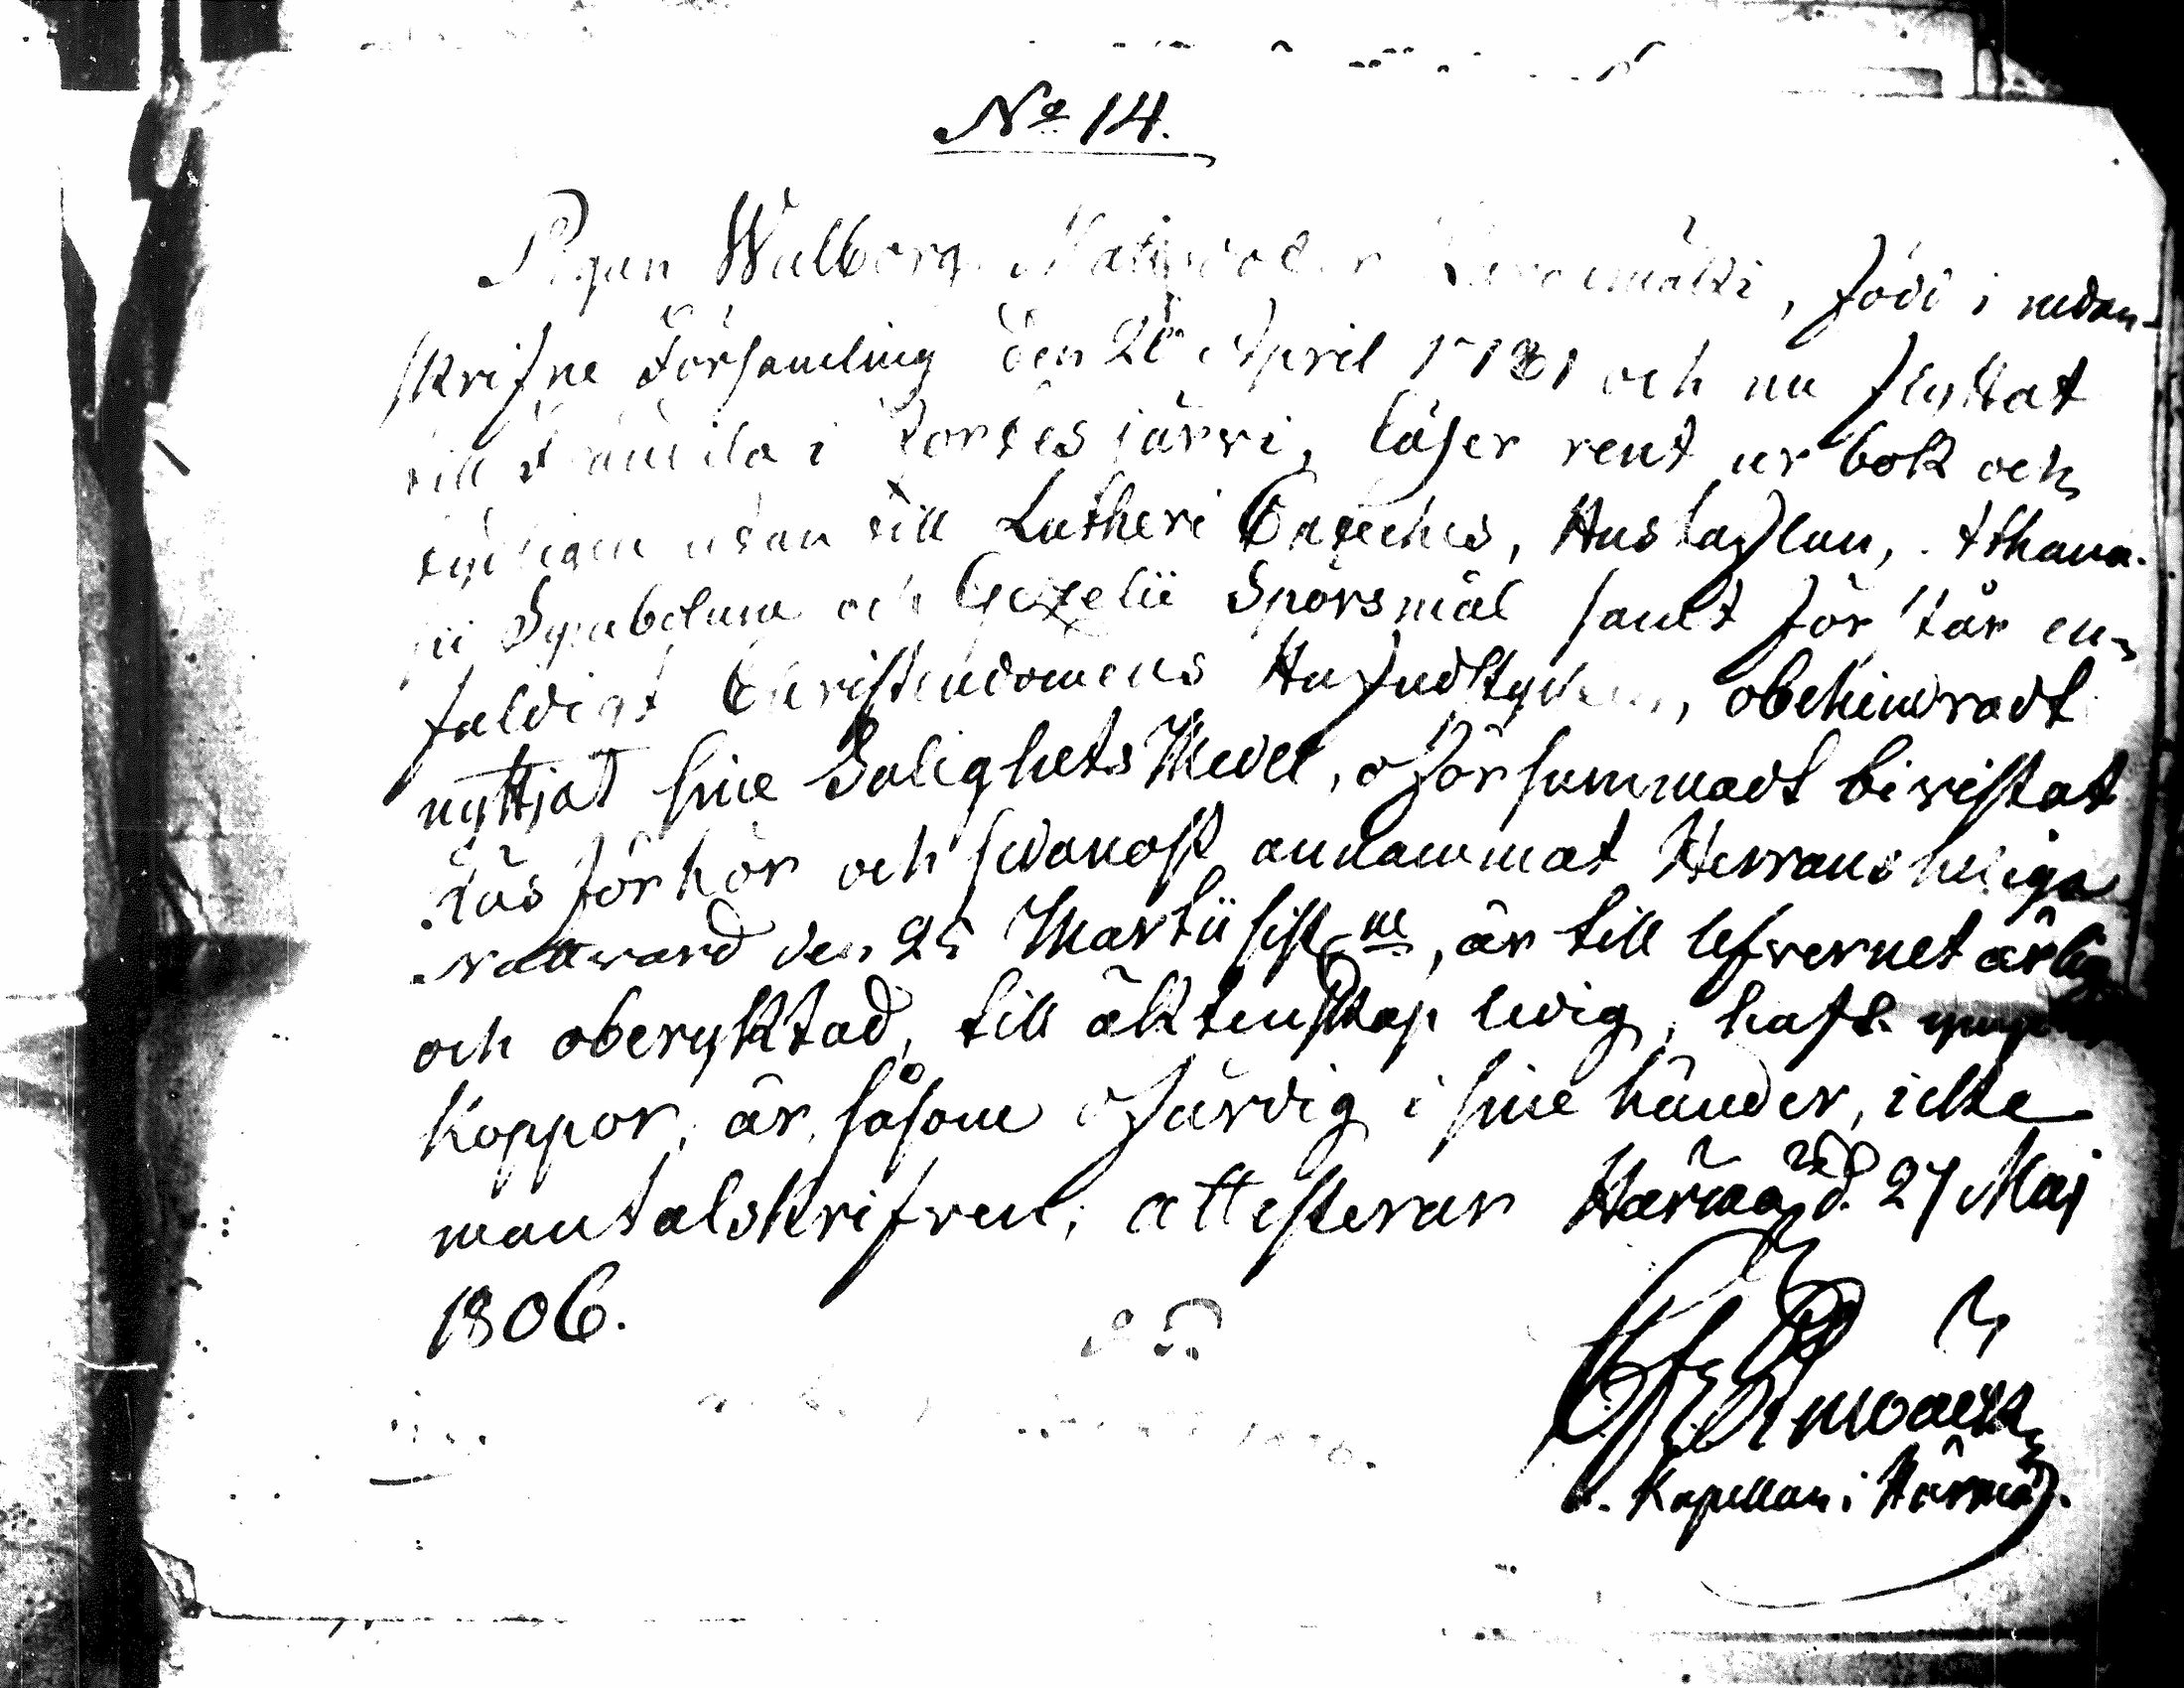 No 14.
Pigan Walborg Matsdoter, född i nedan-
skrifne Församling den 20 April 1781 och nu flyttat
till i Kortesjärvi, läser rent ur bok och
tydligen utan till Lutheri Cateches, Hustaflan, Athana-
sii Symbolum och Gezelii Spörsmål samt förstår en-
faldigt Christendomens Hufvudstycken, obehindradt
nyttjat sine Salighets Medel, oförsummadt bivistat
Läsförhör och sednast annammat Herrans heliga
Nattvard den 25 Martii sistne, är till lefvernet ärlig
och oberyktad, till äktenskap ledig, haft
Koppor, är, såsom ofärdig i sine händer, icke
mantalskrifven; attesterar Härmä d. 27 Maj
1806.
Kapellan i Härmä.